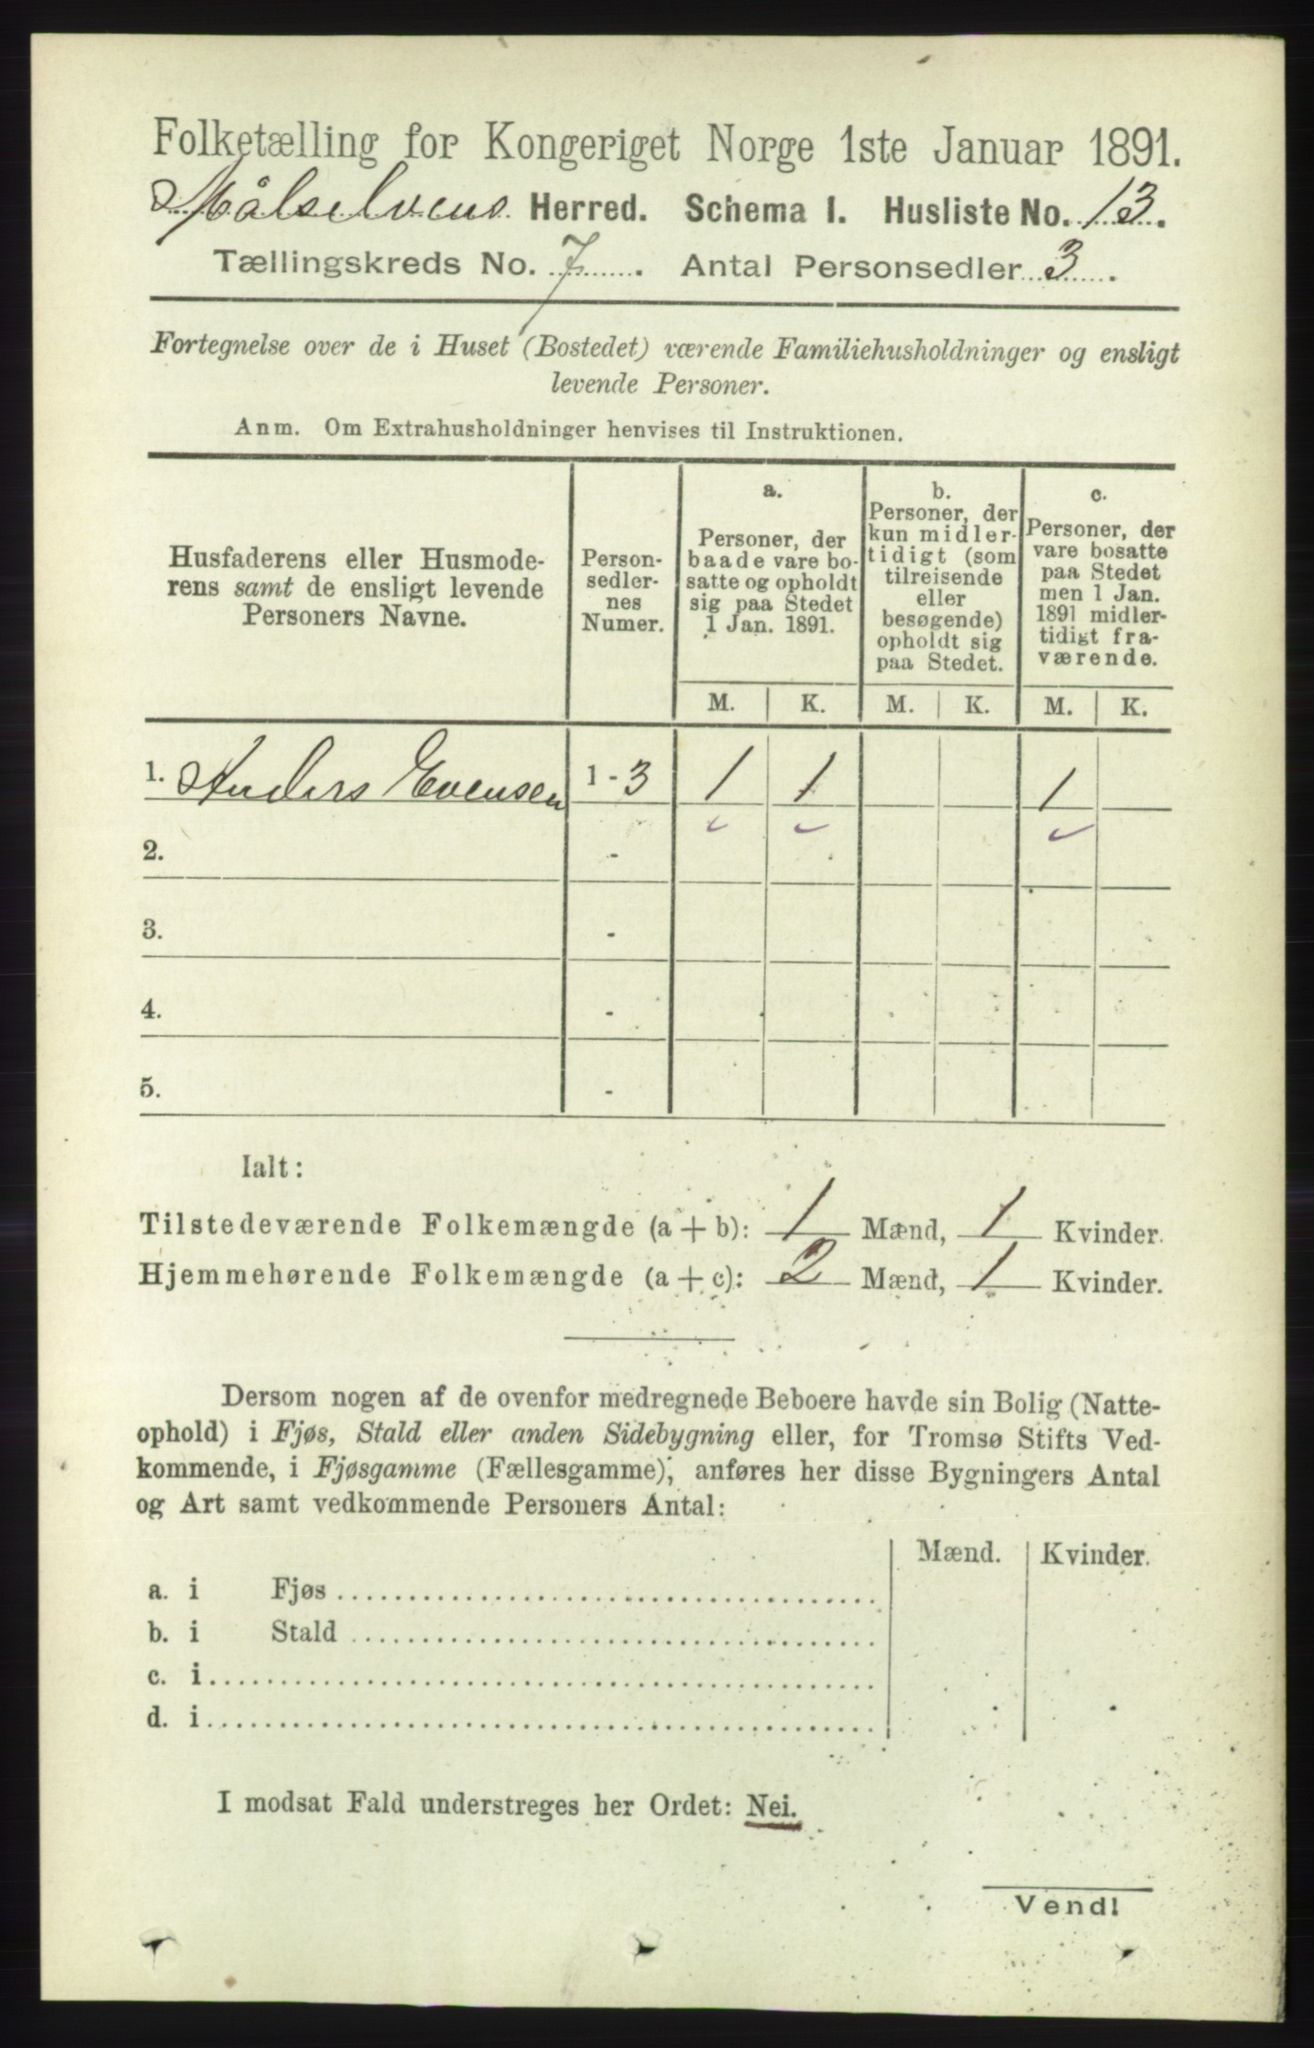 Folketælling for Kongeriget Norge 1ste Januar 1891.
Målselvens Herred. Schema I. Husliste No. 13.
Tællingskreds No. 7. Antal Personsedler 3.
Fortegnelse over de i Huset (Bostedet) værende Familiehusholdninger og ensligt
levende Personer.
Anm. Om Extrahusholdninger henvises til Instruktionen.
Husfaderens eller Husmode-
rens samt de ensligt levende
Personers Navne.
Person-
sedler-
nes
Numer.
a.
Personer, der
baade vare bo-
satte og opholdt
sig paa Stedet
1 Jan. 1891.
b.
Personer, der
kun midler-
tidigt (som
tilreisende
eller
besøgende)
opholdt sig
paa Stedet.
c.
Personer, der
vare bosatte
paa Stedet
men 1 Jan.
1891 midler-
tidigt fra-
værende.
M. K. M. K. M. K.
1. Anders Evensen 1 - 3 1 1 1
2. -
3. -
4. -
5. -
Ialt:
Tilstedeværende Folkemængde (a + b): 1 Mænd, 1 Kvinder.
Hjemmehørende Folkemængde (a + c): 2 Mænd, 1 Kvinder.
Dersom nogen af de ovenfor medregnede Beboere havde sin Bolig (Natte-
ophold) i Fjøs, Stald eller anden Sidebygning eller, for Tromsø Stifts Ved-
kommende, i Fjøsgamme (Fællesgamme), anføres her disse Bygningers Antal
og Art samt vedkommende Personers Antal:
Mænd. Kvinder.
a. i Fjøs
b. i Stald
c. i
d. i
I modsat Fald understreges her Ordet: Nei.
Vend!